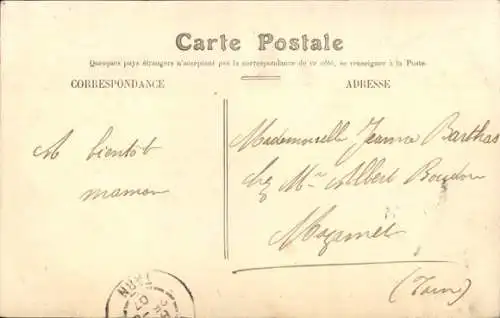 Carte Postale
Quelques pays étrangers n'acceptant pas la correspondance de ce côté, se renseigner à la Poste.
CORRESPONDANCE
ADRESSE
A bientôt
maman
Mademoiselle Jeanne Barthas
chez Mr Albert Bourdon
Mazamet
(Tarn)
TARN